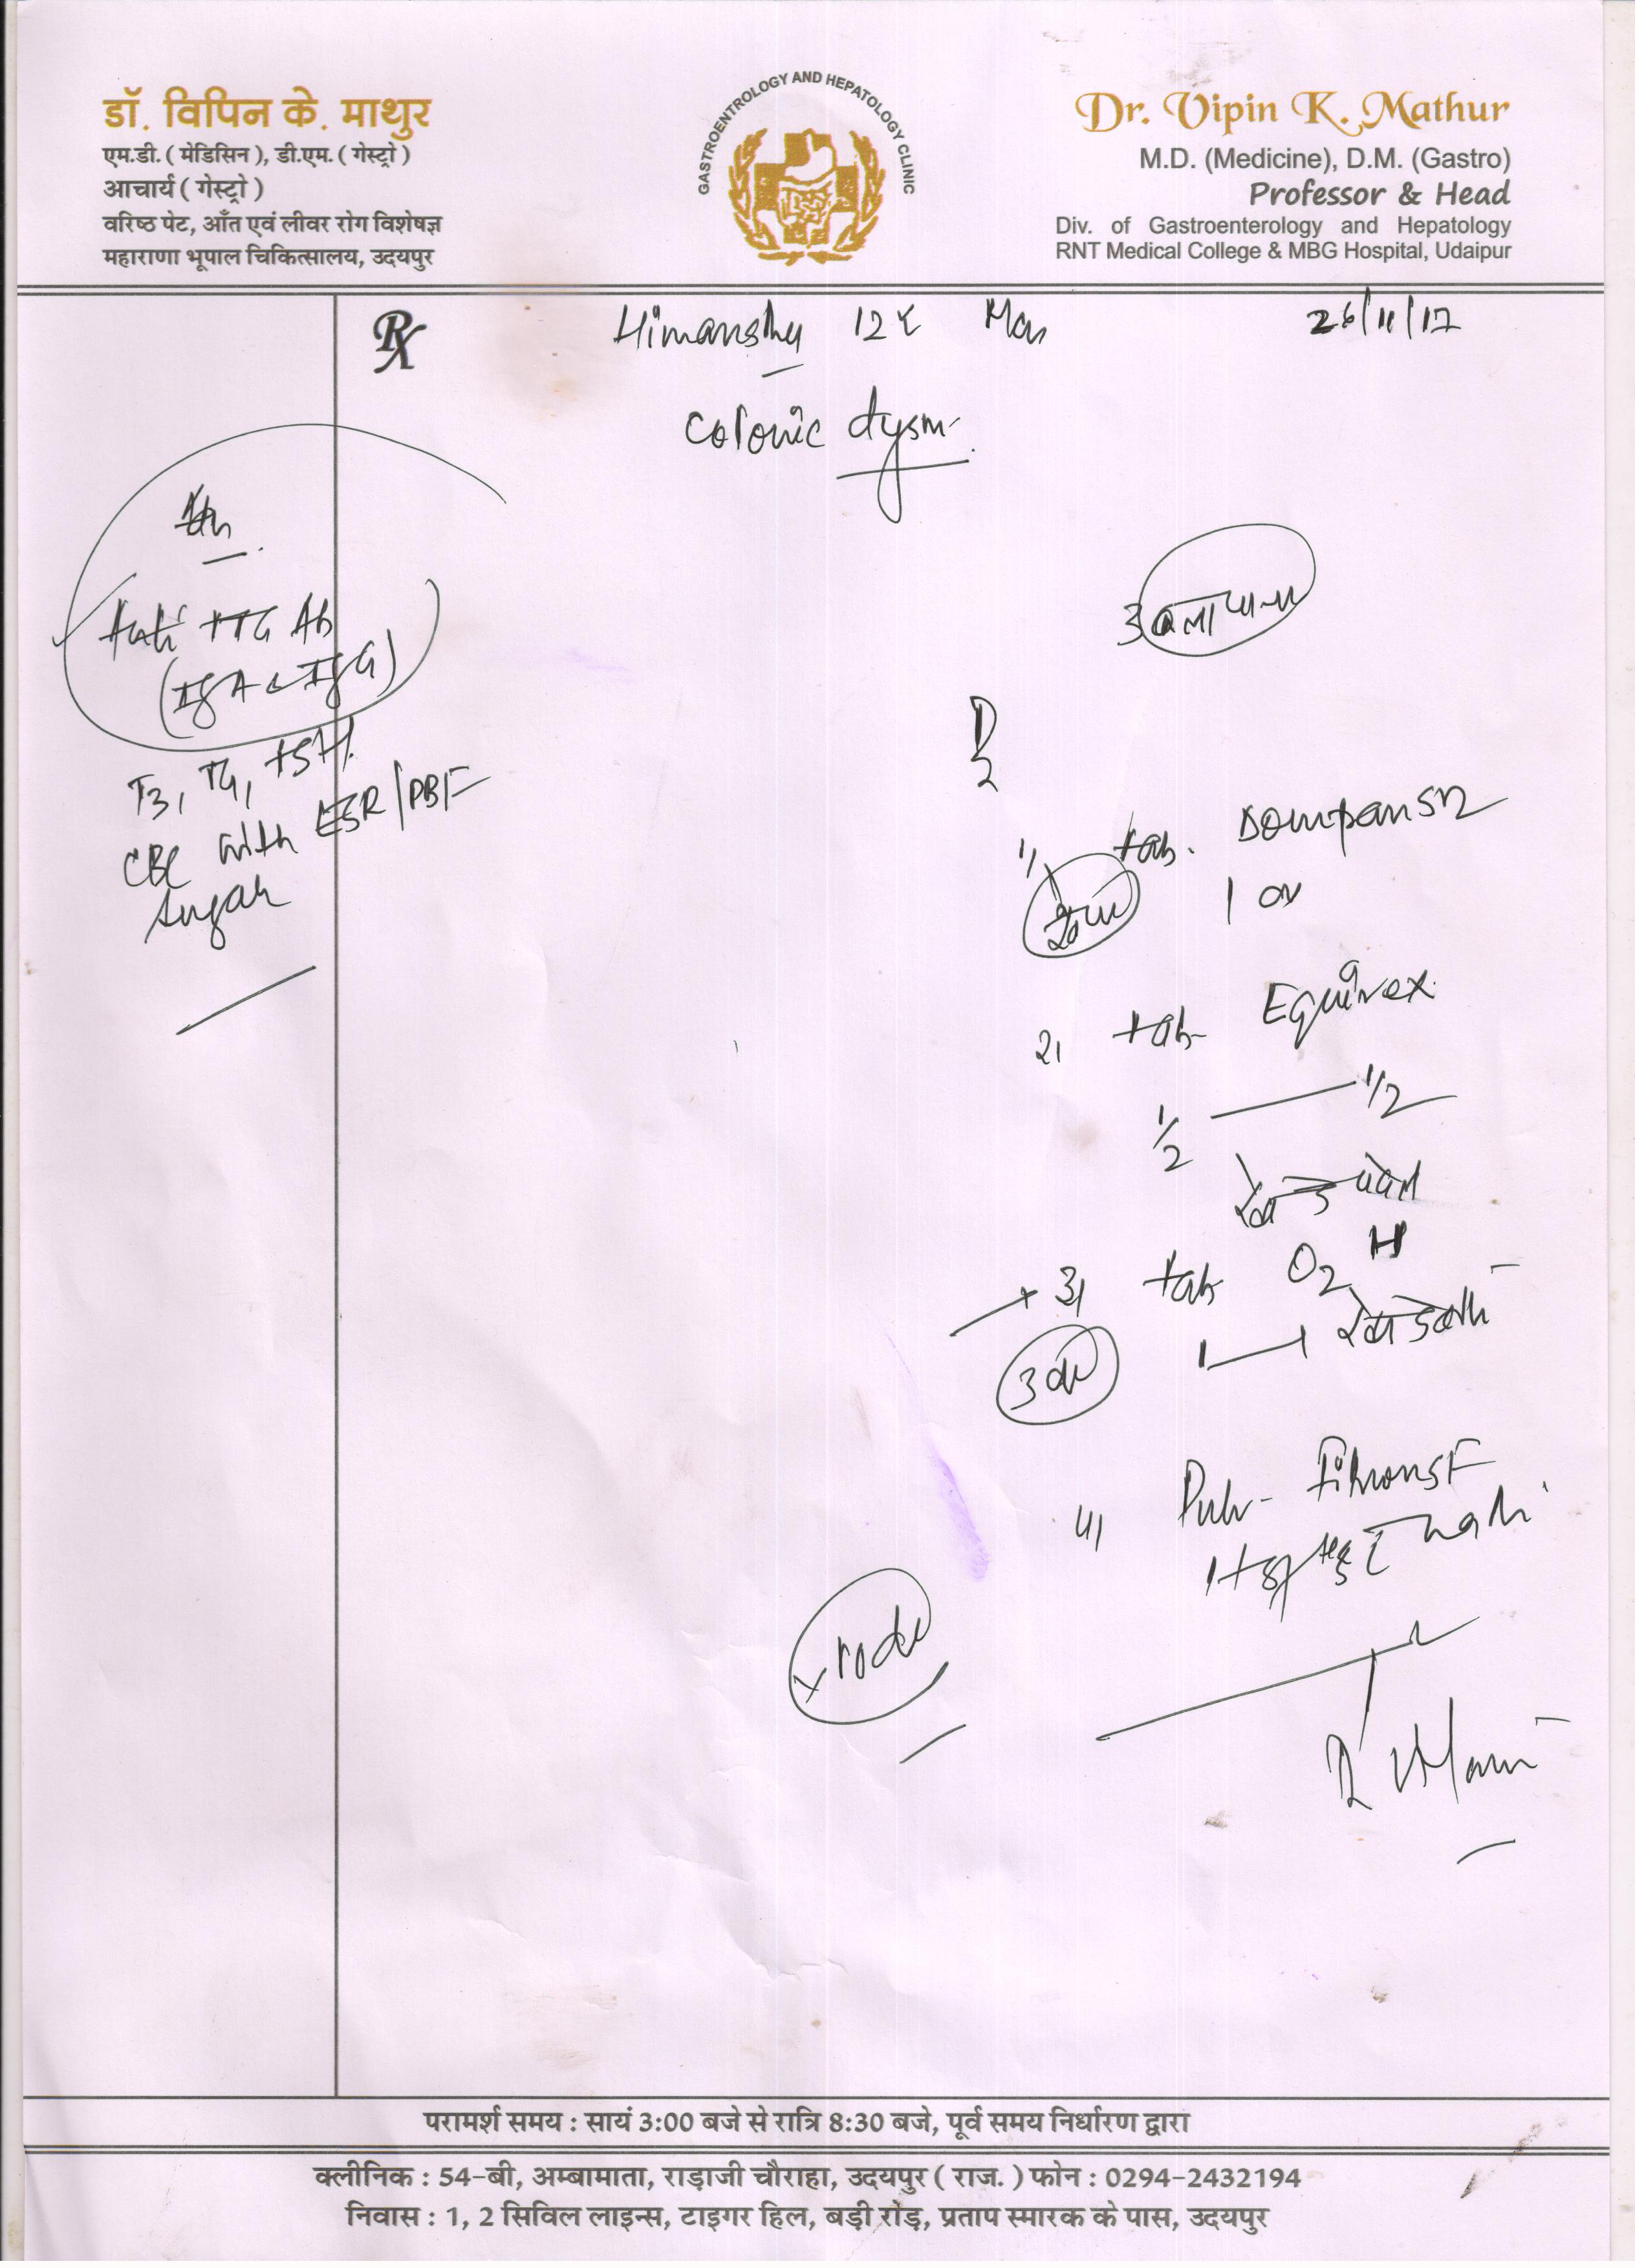 डॉ. विपिन के. माथुर
एम.डी. ( मेडिसिन ), डी.एम. ( गेस्ट्रो )
आचार्य ( गेस्ट्रो )
वरिष्ठ पेट, आँत एवं लीवर रोग विशेषज्ञ
महाराणा भूपाल चिकित्सालय, उदयपुर
GASTROENTROLOGY AND HEPATOLOGY CLINIC
Dr. Vipin K. Mathur
M.D. (Medicine), D.M. (Gastro)
Professor & Head
Div. of Gastroenterology and Hepatology
RNT Medical College & MBG Hospital, Udaipur
Rx
Himanshu 12 26/11/17
Colonic dysm.
Anti TTG Ab
(IgA & IgG)
T3, T4, TSH
CBC with ESR/PBF
Sugar
उबला पानी
1) tab.
1
2) tab Equirex
1/2 — 1/2
3) tab O2 H
1 — 1
4)
परामर्श समय : सायं 3:00 बजे से रात्रि 8:30 बजे, पूर्व समय निर्धारण द्वारा
क्लीनिक : 54-बी, अम्बामाता, राड़ाजी चौराहा, उदयपुर ( राज. ) फोन : 0294-2432194
निवास : 1, 2 सिविल लाइन्स, टाइगर हिल, बड़ी रोड़, प्रताप स्मारक के पास, उदयपुर